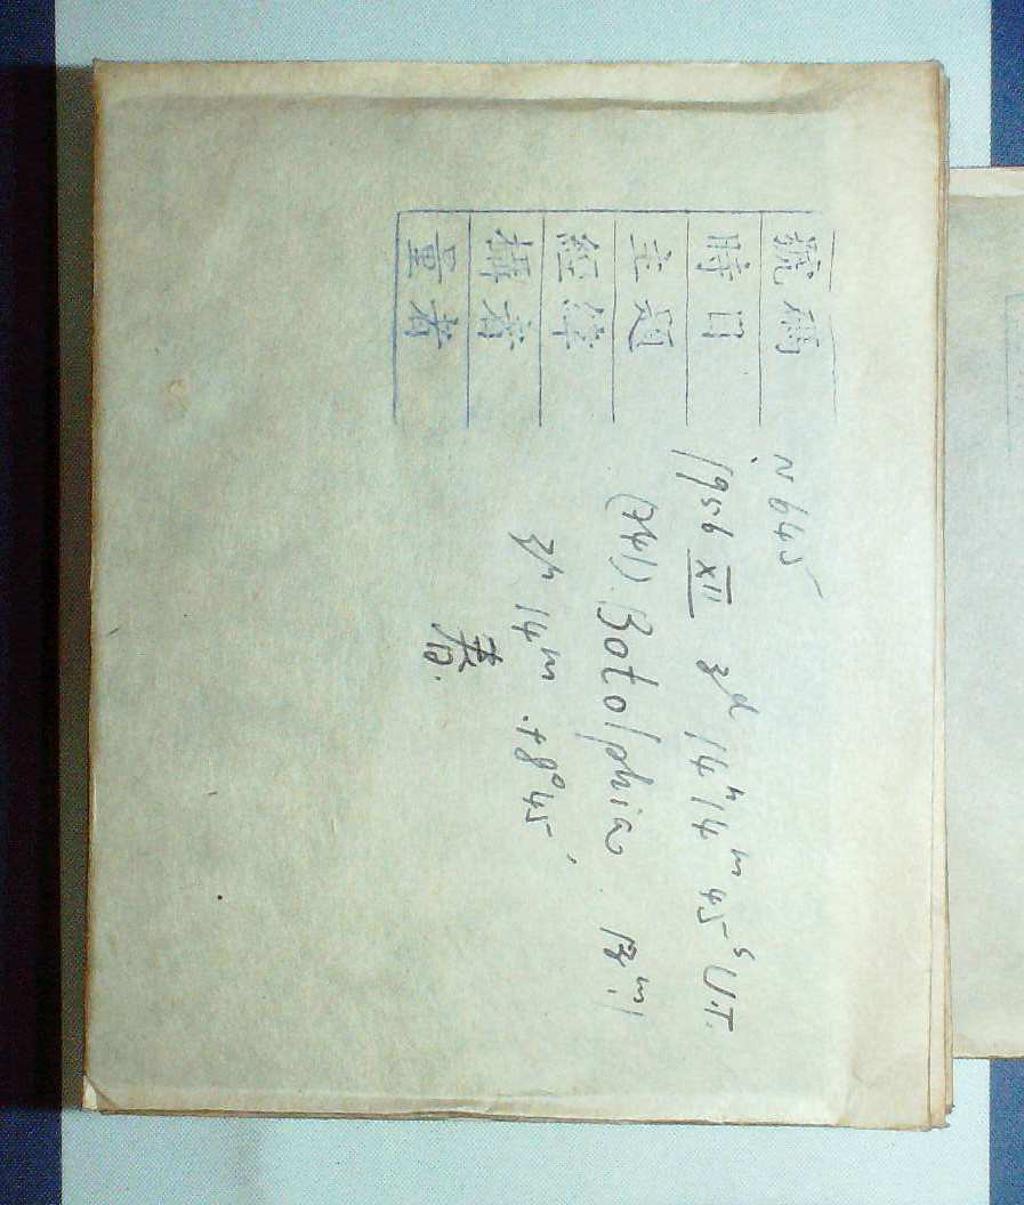 號碼 N 645
時日 1956 XII 3d 14h 14m 45s U.T.
主題 (741) Botolphia 13m.1
經緯 3h 14m +8°45'
攝者
量者